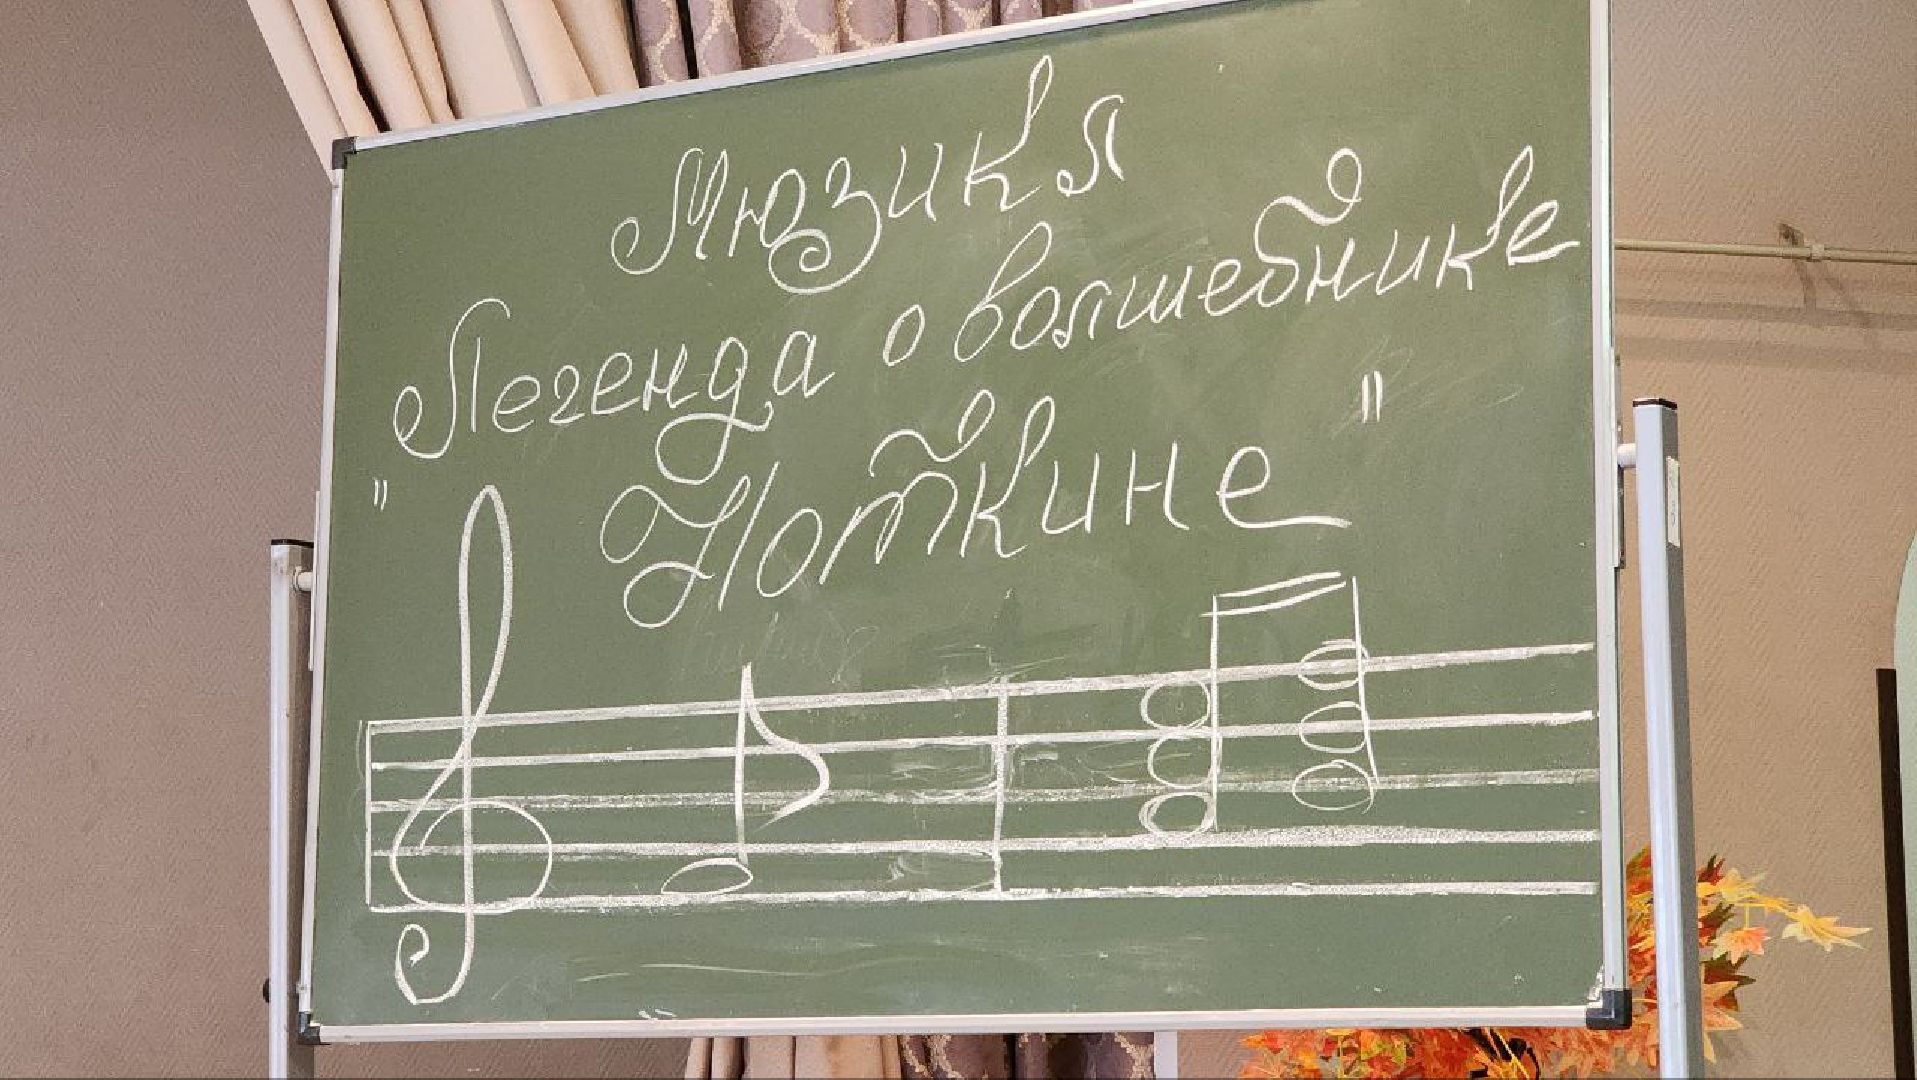 Мюзикл
"Легенда о волшебнике
Ноткине"